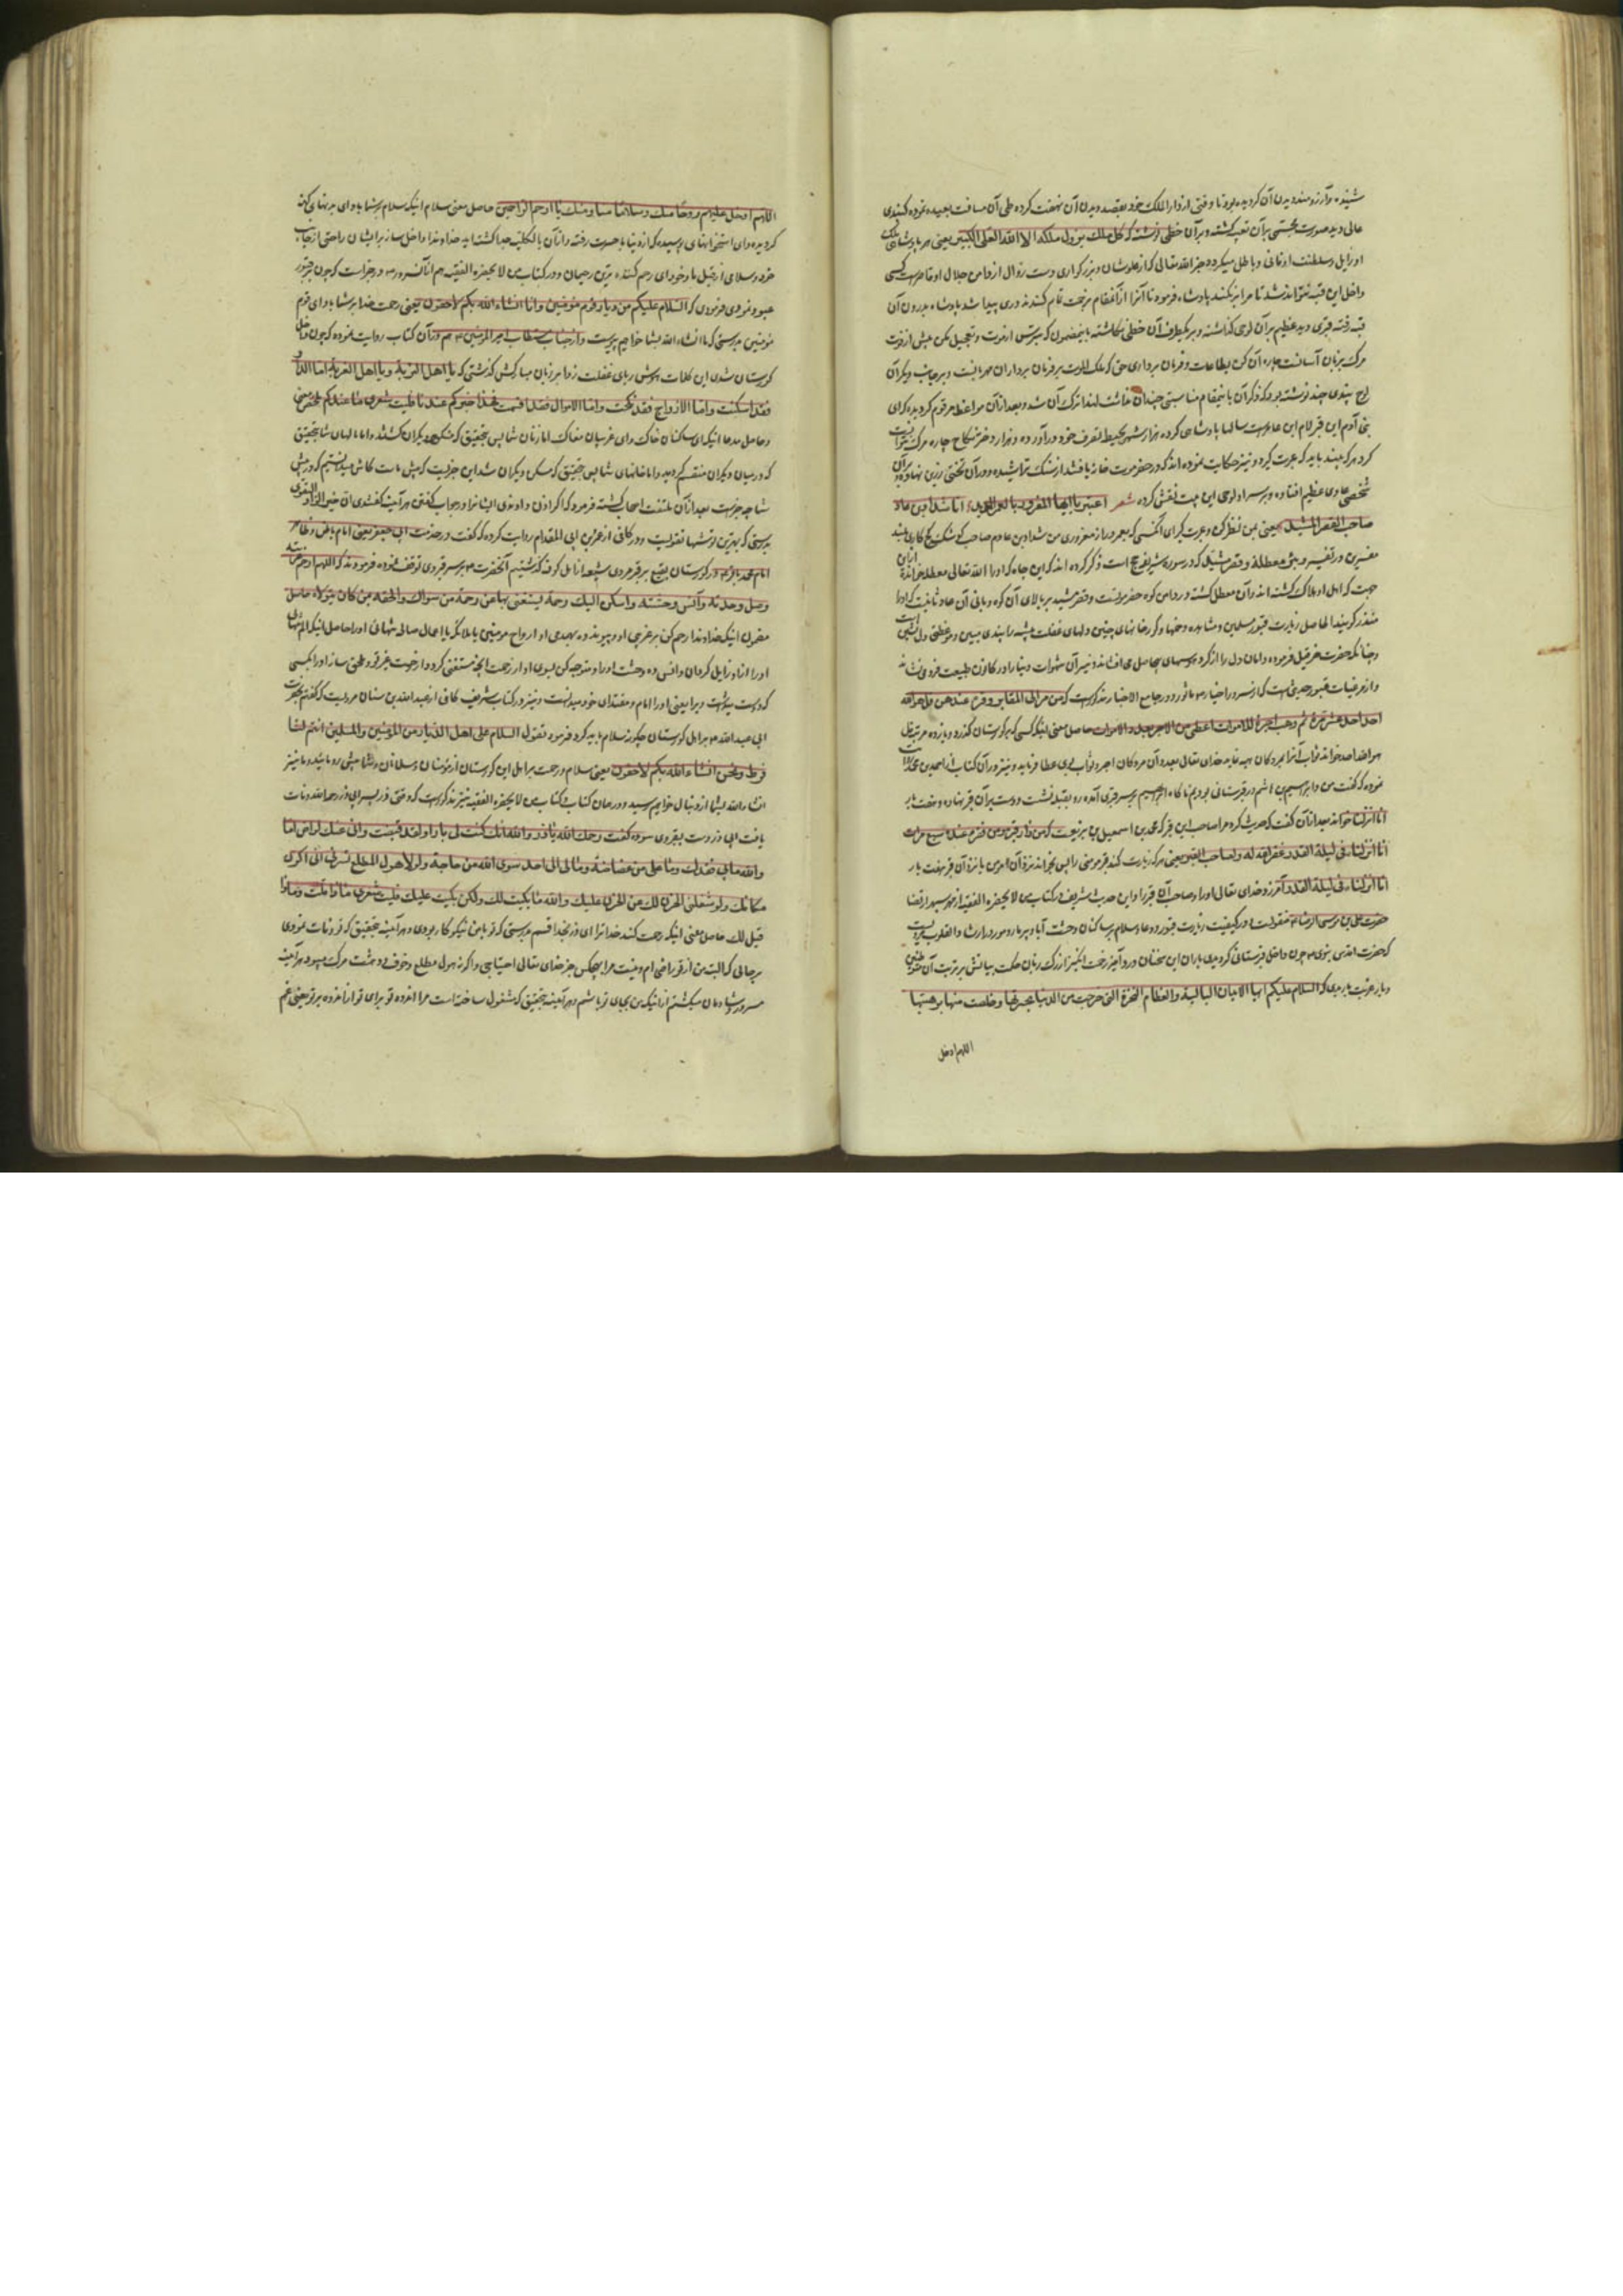 شنیده و آرزومند دیدن آن گردیده بود تا وقتی از دار الملک خود بقصد دیدن آن نهضت کرده طی آن مسافت بعیده نموده گنبدی
عالی دید صورت مجسمی بر آن نصب گشته و بر آن خطی نوشته که کل ملک یزول ملکه الا الله العلی الکبیر یعنی هر پادشاهی ملک
او زایل و سلطنت او فانی و باطل میگردد جز الله تعالی که از علو شان و بزرگواری دست زوال از دامن جلال او قاصر است کسی
داخل این قبه نتواند شد تا مرا بر نکند پادشاه فرمود تا آنرا از آنمقام برخت تمام کندند دری پیدا شد پادشاه بدرون آن
قبه رفته قبری دید عظیم بر آن لوحی گذاشته و بر یکطرف آن خطی نگاشته باینمضمون که مترس از موت و تعجیل مکن پیش از فوت
مرگ بزبان آسانست چاره آن کن بطاعات و فرمان برداری حق که ملک الموت بر فرمان برداران مهربانست و بر جانب دیگر آن
لوح پندی چند نوشته بود که ذکر آن باینمقام مناسبتی چندان نداشت لهذا ترک آن شد و بعد از آن مواعظ مرقوم گردیده که ای
بنی آدم این قبر لام ابن عاد است سالها پادشاهی کرده هزار شهر بحیطه تصرف خود در آورده و هزار دختر بنکاح چاره مرگ نتوانست
کرد هر که بیند باید که عبرت گیرد و نیز حکایت نموده اند که در حضرموت خانه یافتند از سنگ تراشیده و در آن تختی زرین نهاده و بر آن
شخصی عادی عظیم افتاده و بر سر او لوحی این بیت نقش کرده شعر اعتبر یا ایها المغرور بالعمر المدید انا شداد بن عاد
صاحب القصر المشید یعنی بمن نظر کن و عبرت گیر ای آنکسی که بعمر دراز مغروری من شداد بن عادم صاحب کوشک گچ کاری بلند
مفسرین در تفسیر و بئر معطلة و قصر مشید که در سوره شریفه حج است ذکر کرده اند که این چاه که او را الله تعالی معطله خوانده از این
جهت که اهل او هلاک گشته اند و آن معطل گشته در دامن کوه حضرموتست و قصر مشید بر بالای آن کوه و بانی آن عاد ثانیست که او را
منذر گویند الحاصل زیارت قبور مسلمین و مشاهده دخمها و گورخانهای چنین دلهای غفلت پیشه را پندی مبین و موعظتی دل نشین است
و چنانکه حضرت حزقیل فرموده دامان دل را از گرد هوسهای بیحاصل می افشاند و نیران شهوات دنیا را در کانون طبیعت فرو می نشاند
و از مرغبات قبور حدیثی است که از سرور اخیار ص ماثور و در جامع الاخبار مذکور است که من مر الی المقابر و قرء عنده من قل هو الله
احد احد عشر مرة ثم وهب اجره للاموات اعطی من الاجر بعدد الاموات حاصل معنی اینکه کسی که بگورستان گذرد و یازده مرتبه قل
هو الله احد خواند ثواب آنرا بمردگان هبه نماید خدای تعالی بعدد آن مردگان اجر و ثواب بوی عطا فرماید و نیز در آن کتاب از احمد بن محمد روایت
نموده که گفت من و ابراهیم بن هاشم در قبرستانی بودیم ناگاه ابراهیم بر سر قبری آمده رو بقبله نشست و دست بر آن قبر نهاده و هفت بار
انا انزلنا خواند بعد از آن گفت که حدیث کرد مرا صاحب این قبر که محمد بن اسمعیل بن بزیعست که من زار قبر مومن فقرء عنده سبع مرات
انا انزلناه فی لیلة القدر غفر الله له و لصاحب القبر یعنی هر که زیارت کند قبر مومنی را پس بخواند نزد آن او من یا نزد آن قبر هفت بار
انا انزلناه فی لیلة القدر آمرزد خدای تعالی او را و صاحب آن قبر را و این حدیث شریف در کتاب من لا یحضره الفقیه از شهر سپهر ارتضا
حضرت علی ابن موسی الرضا ع منقولست و در کیفیت زیارت قبور و دعا و سلام بر ساکنان وحشت آباد پر مار و مور دیار رشا و القلوب مرویست
که حضرت اقدس نبوی ص چون داخل قبرستانی گردیدی بآن این سخنان درد آمیز رحمت انگیز از زبان حکمت بیانش بر تربت آن متوطنین
دیار غربت باریدی که السلام علیکم ایها الابدان البالیة و العظام النخرة التی خرجت من الدنیا بحسرتها و خلصت منها برهینها
اللهم ادخل
اللهم ادخل علیهم روحا منک و سلاما منا و منک یا ارحم الراحمین حاصل معنی سلام اینکه سلام بر شما باد ای بدنهای کهنه
گردیده و ای استخوانهای پوسیده که از دنیا با حسرت رفته و از آن بالکلیه جدا گشته اید خداوندا داخل ساز بر ایشان راحتی از جانب
خود و سلامی از قبل ما و خود ای رحم کننده ترین رحیمان و در کتاب من لا یحضره الفقیه هم از آنسرور ص در خبر است که چون بر قبور
عبور نمودی فرمودی که السلام علیکم من دیار قوم مؤمنین و انا انشاء الله بکم لاحقون یعنی رحمت خدا بر شما باد ای قوم
مؤمنین بدرستی که ما انشاء الله بشما خواهیم پیوست و از جناب مستطاب امیر المؤمنین ع هم در آن کتاب روایت نموده که چون داخل
گورستان شدی این کلمات هوش ربای غفلت زدا بر زبان مبارکش گذشتی که یا اهل التربة و یا اهل الغربة اما الدور
فقد اسکنت و اما الازواج فقد نکحت و اما الاموال فقد قسمت فهذا خبر ما عندنا فلیت شعری ما عندکم ملخص معنی
و حاصل مدعا اینکه ای ساکنان خاک و ای غریبان مغاک اما زنان شما پس بتحقیق که منکوحه دیگران گشتند و اما مالهای شما بتحقیق
که در میان دیگران منقسم گردید و اما خانهای شما پس بتحقیق که مسکن دیگران شد این خبریست که پیش ماست کاش میدانستیم که در پیش
شما چه خبر است بعد از آن ملتفت اصحاب گشته فرمود که اگر اذن دادندی ایشانرا در جواب گفتن هر آینه گفتندی ان خیر الزاد التقوی
بدرستی که بهترین توشها تقویست و در کافی از عمرو بن ابی المقدام روایت کرده که گفت در خدمت ابی جعفر یعنی امام باطن و ظاهر
امام محمد باقر ع در گورستان بقیع بر قبر مردی شیعه از اهل کوفه گذشتیم آنحضرت ع بر سر قبر وی توقف نموده فرمودند که اللهم ارحم غربته
و صل وحدته و آنس وحشته و اسکن الیه من رحمتک رحمة یستغنی بها عن رحمة من سواک و الحقه بمن کان یتولاه حاصل
مضمون اینکه خداوندا رحم کن بر غریبی او و پیوند ده بهمدمی او ارواح مومنین یا ملائکه یا اعمال صالی تنهائی او را حاصل اینکه الم تنهائی
او را از او زایل گردان و انس ده وحشت او را و متوجه کن بسوی او از رحمت آنچه مستغنی گردد از رحمت غیر تو و ملحق ساز او را بکسی
که دوست میداشت ویرا یعنی او را امام و مقتدای خود میدانست و نیز در کتاب شریف کافی از عبد الله بن سنان مرویست که گفتم بحضرت
ابی عبد الله ع بر اهل گورستان چگونه سلام باید کرد فرمود تقول السلام علی اهل الدیار من المؤمنین و المسلمین انتم لنا
فرط و نحن انشاء الله بکم لاحقون یعنی سلام و رحمت بر اهل این گورستان از مؤمنان و مسلمانان و شما پیش رو مائید و ما نیز
انشاء الله بشما از دنبال خواهیم رسید و در همان کتاب و کتاب من لا یحضره الفقیه نیز مذکور است که وقتی ذر پسر ابی ذر رحمه الله وفات
یافت ابی ذر دست بقبر وی سوده گفت رحمک الله یا ذر والله ان کنت لی بارا و لقد قبضت و انی عنک لراض اما
والله ما بی فقدک و ما علی من غضاضة و ما لی الی احد سوی الله من حاجة و لولا هول المطلع لسرنی ان اکون
مکانک و لقد شغلنی الحزن لک عن الحزن علیک والله ما بکیت لک و لکن بکیت علیک فلیت شعری ماذا قلت و ماذا
قیل لک حاصل معنی اینکه رحمت کند خدا ترا ای ذر بخدا قسم بدرستی که تو با من نیکوکار بودی و هر آینه بتحقیق که فوت نمودی
بر حالی که البته من از تو راضی ام و نیست مرا بهیچکس جز خدای تعالی احتیاجی و اگر نه هول مطلع و خوف و دهشت مرگ میبود هر آینه
مسرور و شادمان میگشتم از اینکه من بجای تو باشم و هر آینه بتحقیق که مشغول ساخته است مرا اندوه تو برای تو از اندوه بر تو یعنی غم